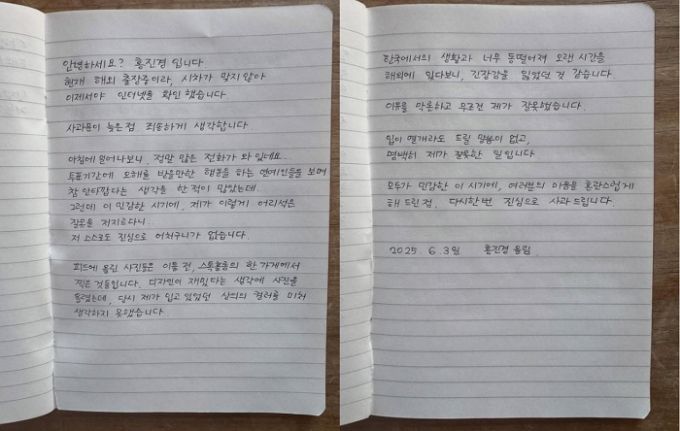 안녕하세요? 홍진경 입니다
현재 해외 출장중이라, 시차가 맞지 않아
이제서야 인터넷을 확인 했습니다
사과문이 늦은 점, 죄송하게 생각합니다
아침에 일어나보니, 정말 많은 전화가 와 있네요..
투표기간에 오해를 받을만한 행동을 하는 연예인들을 보며
참 안타깝다는 생각을 한 적이 많았는데..
그런데 이 민감한 시기에, 제가 이렇게 어리석은
잘못을 저지르다니..
저 스스로도 진심으로 어처구니가 없습니다.
피드에 올린 사진들은 이틀 전, 스톡홀름의 한 가게에서
찍은 것들입니다. 디자인이 재밌다는 생각에 사진을
올렸는데, 당시 제가 입고 있었던 상의의 컬러를 미처
생각하지 못했습니다
한국에서의 생활과 너무 동떨어져 오랜 시간을
해외에 있다보니, 긴장감을 잃었던 것 같습니다.
이유를 막론하고 무조건 제가 잘못했습니다.
입이 열개라도 드릴 말씀이 없고,
명백히 제가 잘못한 일입니다
모두가 민감한 이 시기에, 여러분의 마음을 혼란스럽게
해 드린 점, 다시한번 진심으로 사과 드립니다.
2025 6. 3일 홍진경 올림.